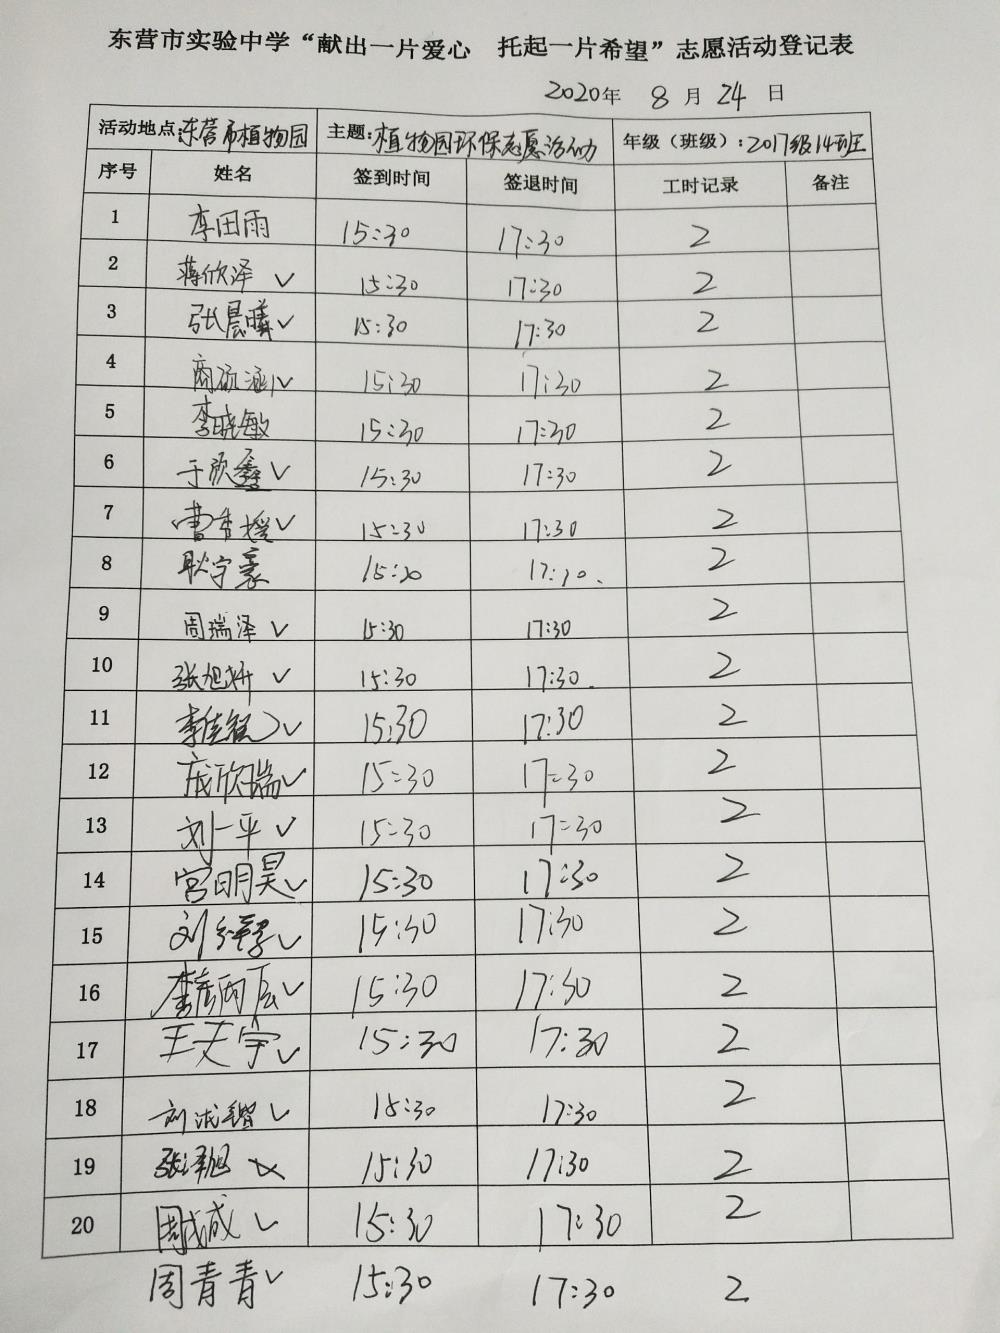 东营市实验中学“献出一片爱心 托起一片希望”志愿活动登记表
2020年 8 月 24 日
活动地点:东营市植物园 主题:植物园环保志愿活动 年级（班级）:2017级14班
序号 姓名 签到时间 签退时间 工时记录 备注
1 李田雨 15:30 17:30 2
2 蒋欣泽 ✓ 15:30 17:30 2
3 张晨曦 ✓ 15:30 17:30 2
4 商硕涵 ✓ 15:30 17:30 2
5 李晓敏 15:30 17:30 2
6 于欣鑫 ✓ 15:30 17:30 2
7 曹 ✓ 15:30 17:30 2
8 耿宇豪 15:30 17:30. 2
9 周瑞泽 ✓ 15:30 17:30 2
10 张旭妍 ✓ 15:30 17:30. 2
11 李佳 ✓ 15:30 17:30 2
12 欣瑞 ✓ 15:30 17:30 2
13 刘一平 ✓ 15:30 17:30 2
14 宫明昊 ✓ 15:30 17:30 2
15 刘 ✓ 15:30 17:30 2
16 李 ✓ 15:30 17:30 2
17 王文宇 ✓ 15:30 17:30 2
18 刘 ✓ 15:30 17:30 2
19 张泽旭 ✓ 15:30 17:30 2
20 周成 ✓ 15:30 17:30 2
周青青 ✓ 15:30 17:30 2